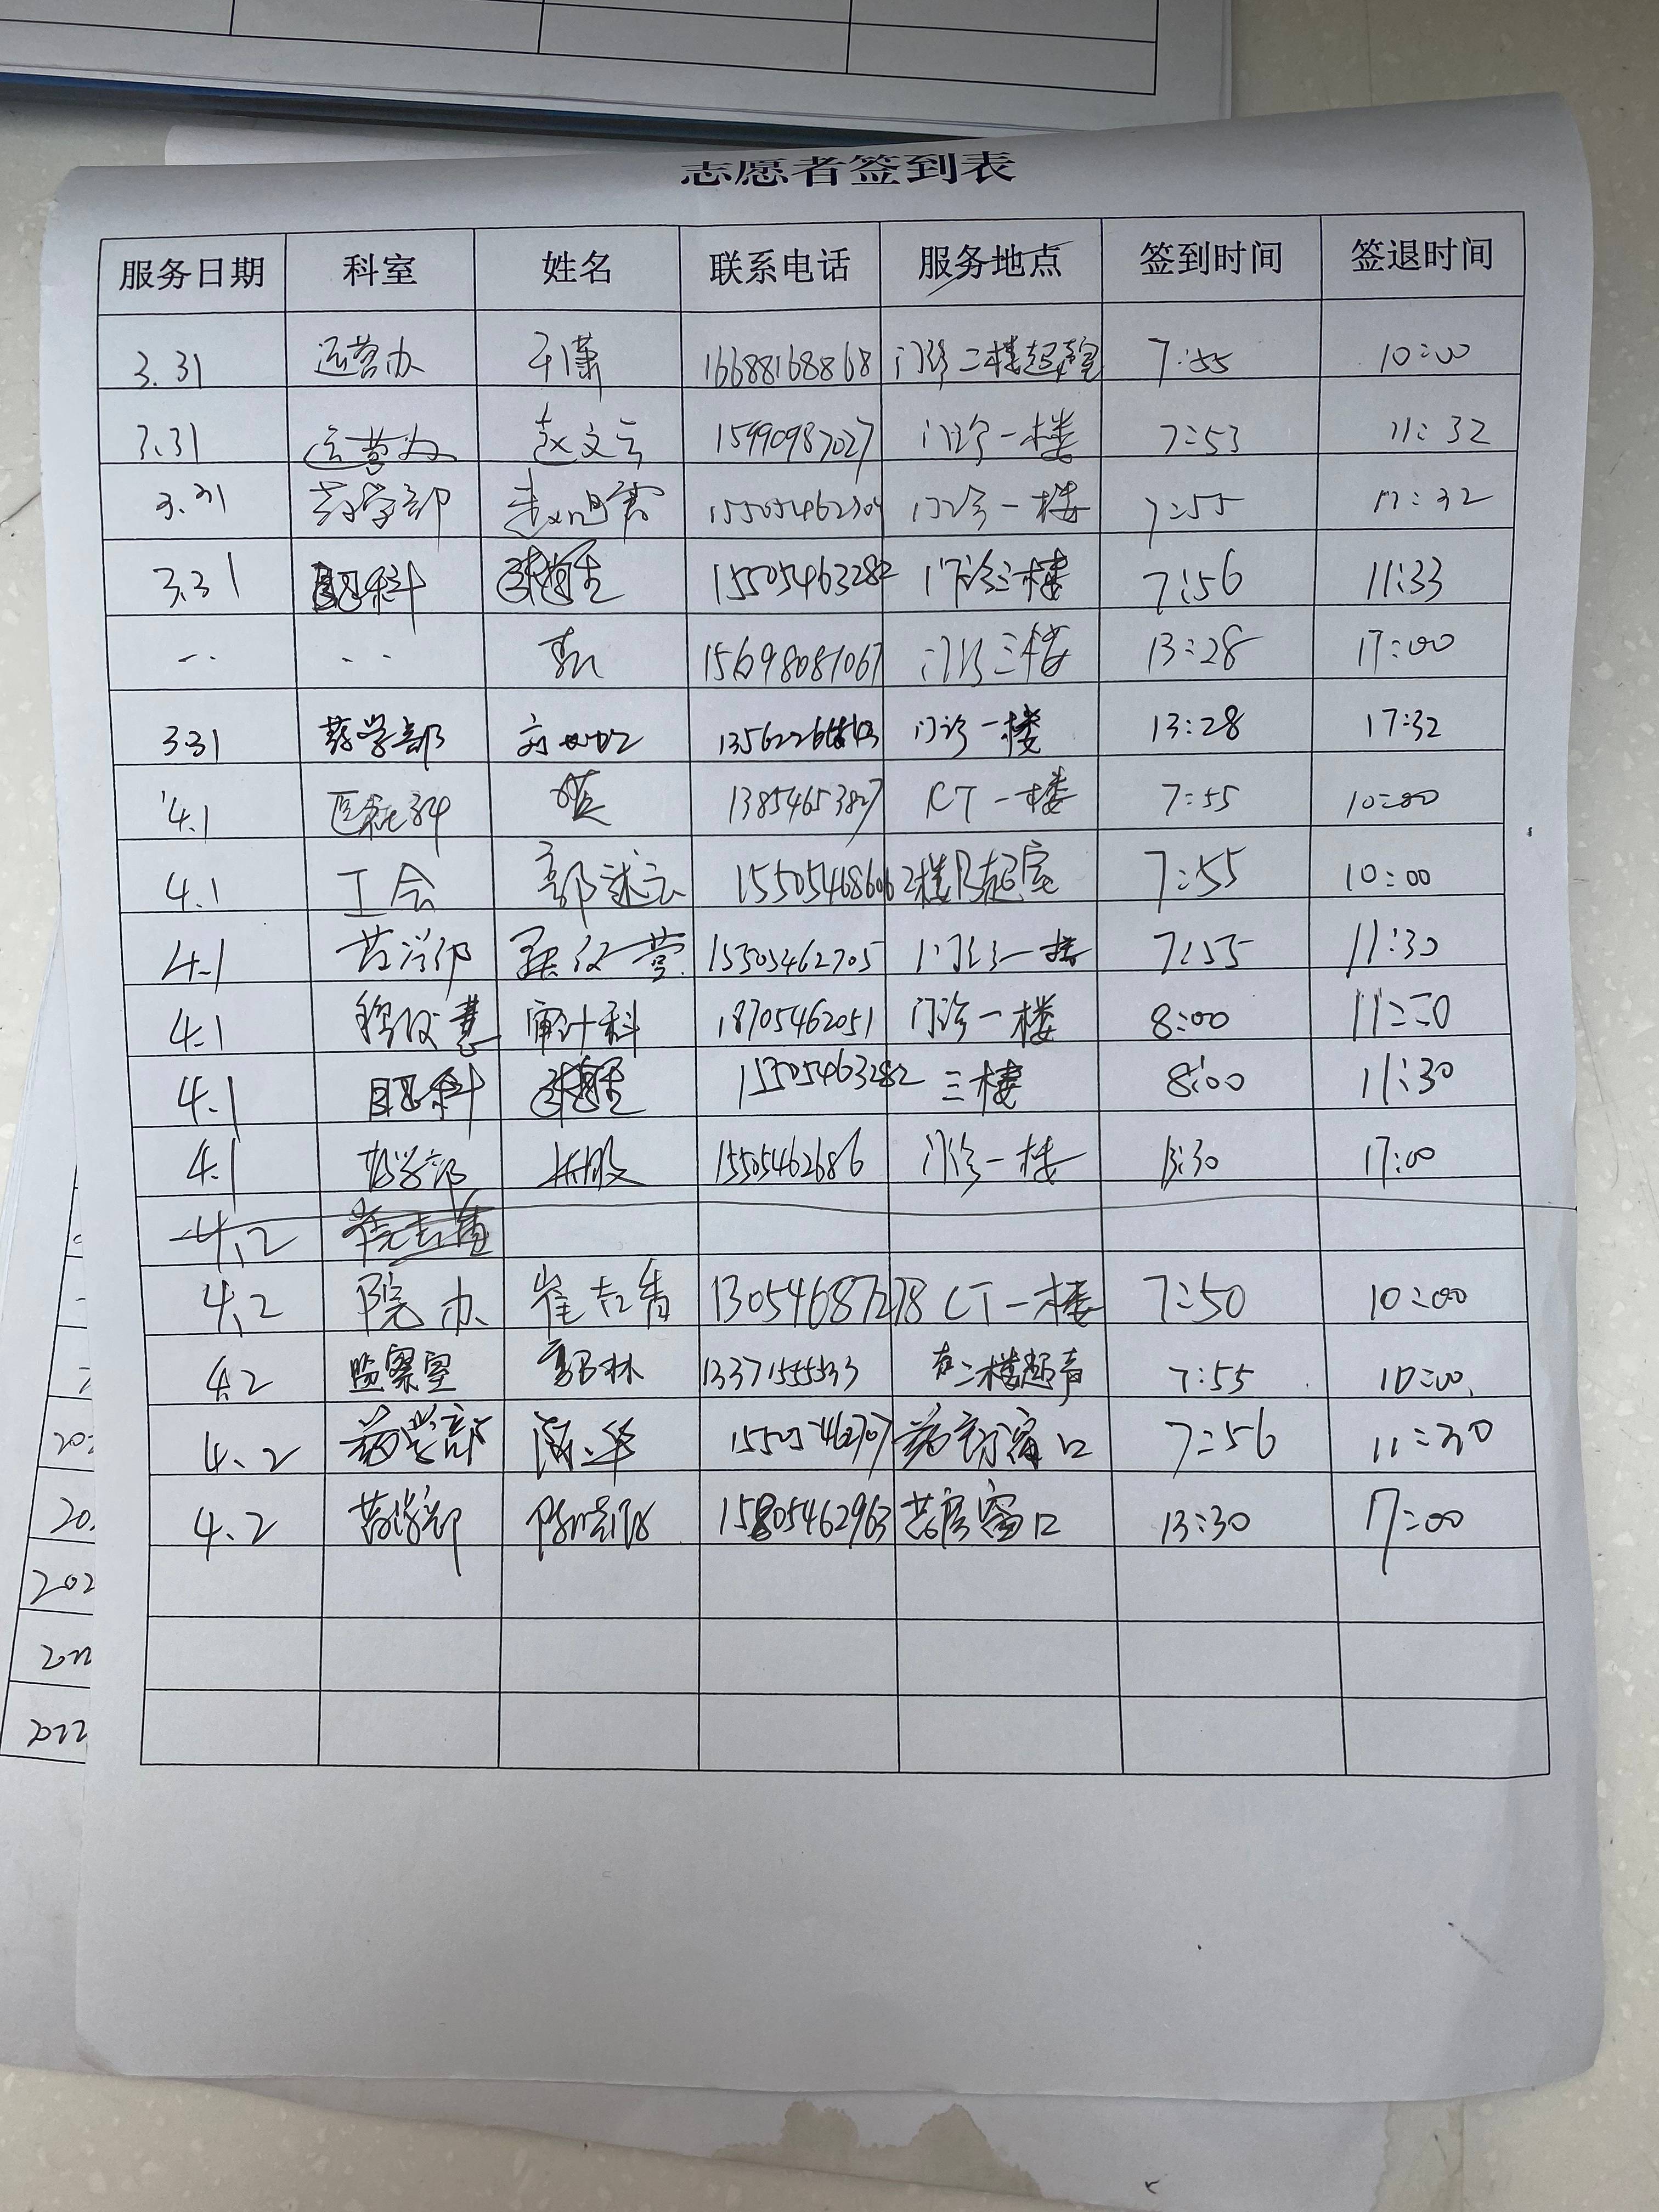 志愿者签到表
服务日期 科室 姓名 联系电话 服务地点 签到时间 签退时间
3.31 运营办 于潇 16688168868 门诊二楼超声室 7:55 10:00
3.31 运营办 赵文云 15990987027 门诊一楼 7:53 11:32
3.31 药学部 门诊一楼 7:55 11:32
3.31 眼科 15505463282 门诊三楼 7:56 11:33
.. .. 15698081067 门诊三楼 13:28 17:00
3.31 药学部 门诊一楼 13:28 17:32
4.1 13854653827 CT一楼 7:55 10:00
4.1 工会 15505468606 2楼B超室 7:55 10:00
4.1 药学部 15505462705 门诊一楼 7:55 11:30
4.1 审计科 18705462051 门诊一楼 8:00 11:30
4.1 眼科 15505463282 三楼 8:00 11:30
4.1 药学部 15505462686 门诊一楼 13:30 17:00
4.2
4.2 院办 崔吉香 13054687278 CT一楼 7:50 10:00
4.2 监察室 郭林 13371555533 二楼超声 7:55 10:00
4.2 药学部 15505462707 药房窗口 7:56 11:30
4.2 药学部 15805462963 药房窗口 13:30 17:00
20
202
202
2022